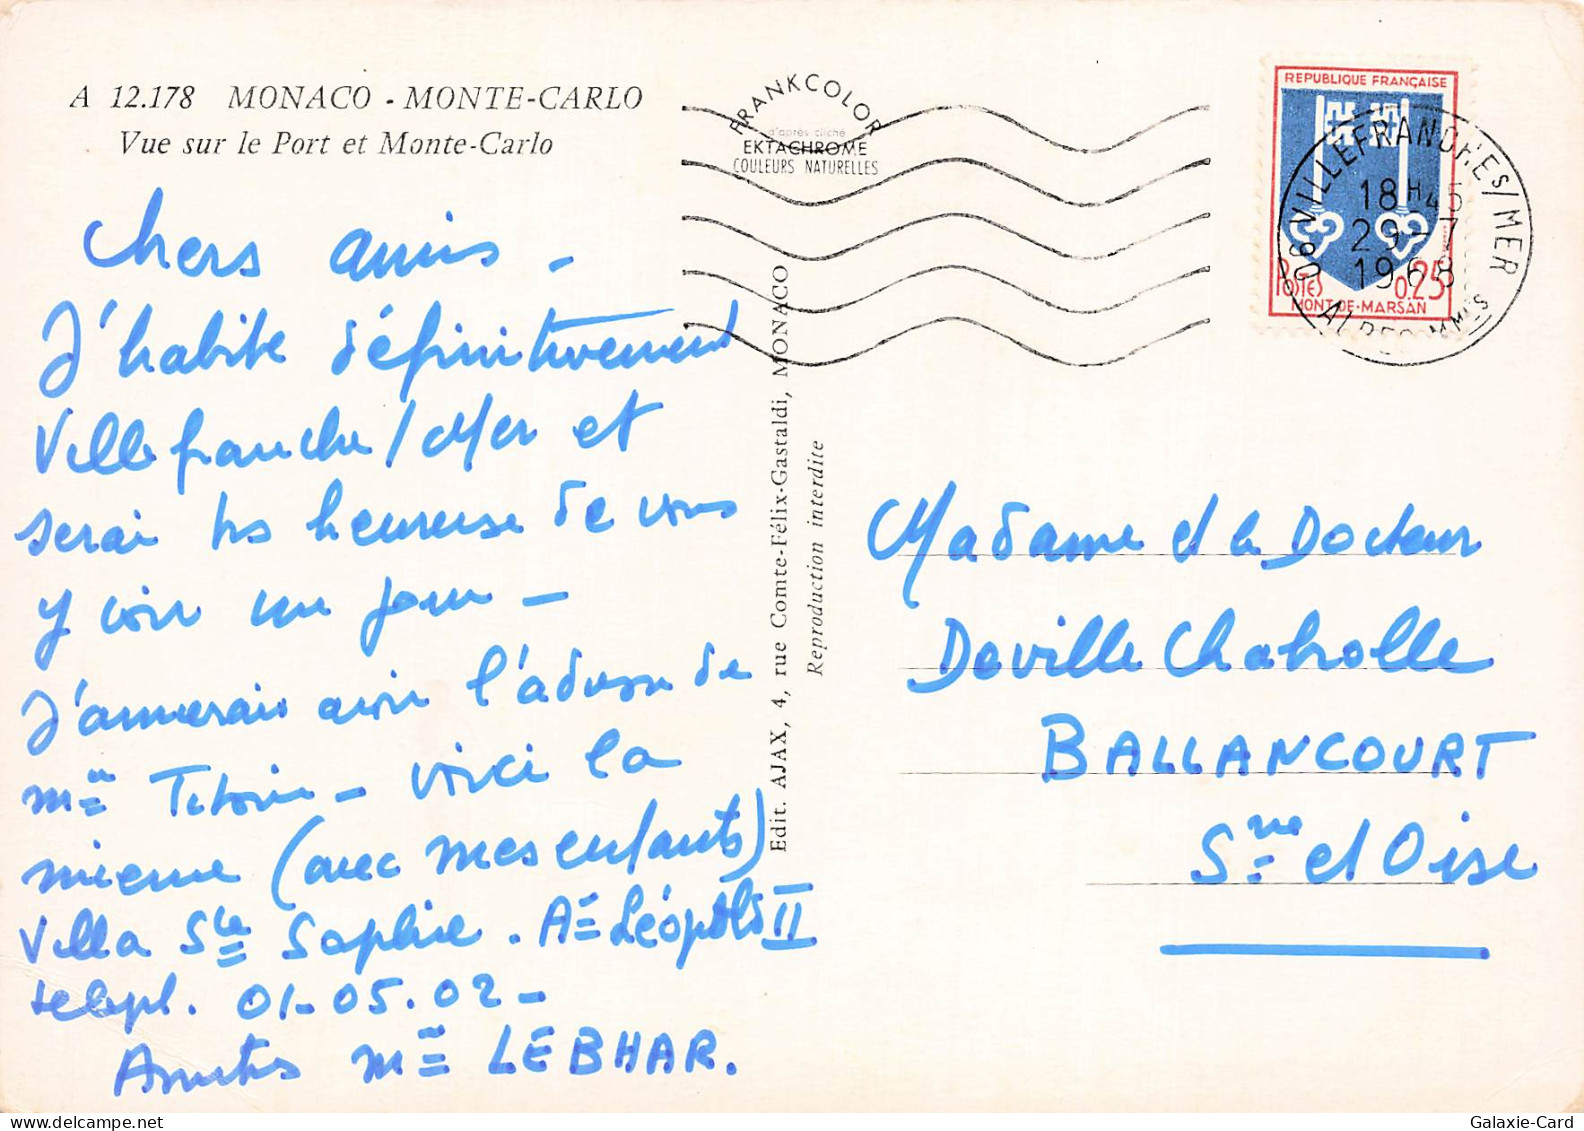 A 12.178 MONACO - MONTE-CARLO
Vue sur le Port et Monte-Carlo
Chers amis -
J'habite définitivement
Villefranche / Mer et
serai très heureuse de vous
y voir un jour -
J'aimerais avoir l'adresse de
Mme - voici la
mienne (avec mes enfants)
Villa Ste Sophie. Ae Léopold II
telepl. 01-05.02-
Amitiés Mme LEBHAR.
Edit. AJAX, 4, rue Comte-Félix-Gastaldi, MONACO
Reproduction interdite
FRANKCOLOR
d'après cliché
EKTACHROME
COULEURS NATURELLES
REPUBLIQUE FRANÇAISE
POSTES 0,25
MONT-DE-MARSAN
06 VILLEFRANCHE S/MER
18H45
29-7
1968
ALPES MMES
Madame et le Docteur
Deville Chabrolle
BALLANCOURT
Sne et Oise
Galaxie-Card